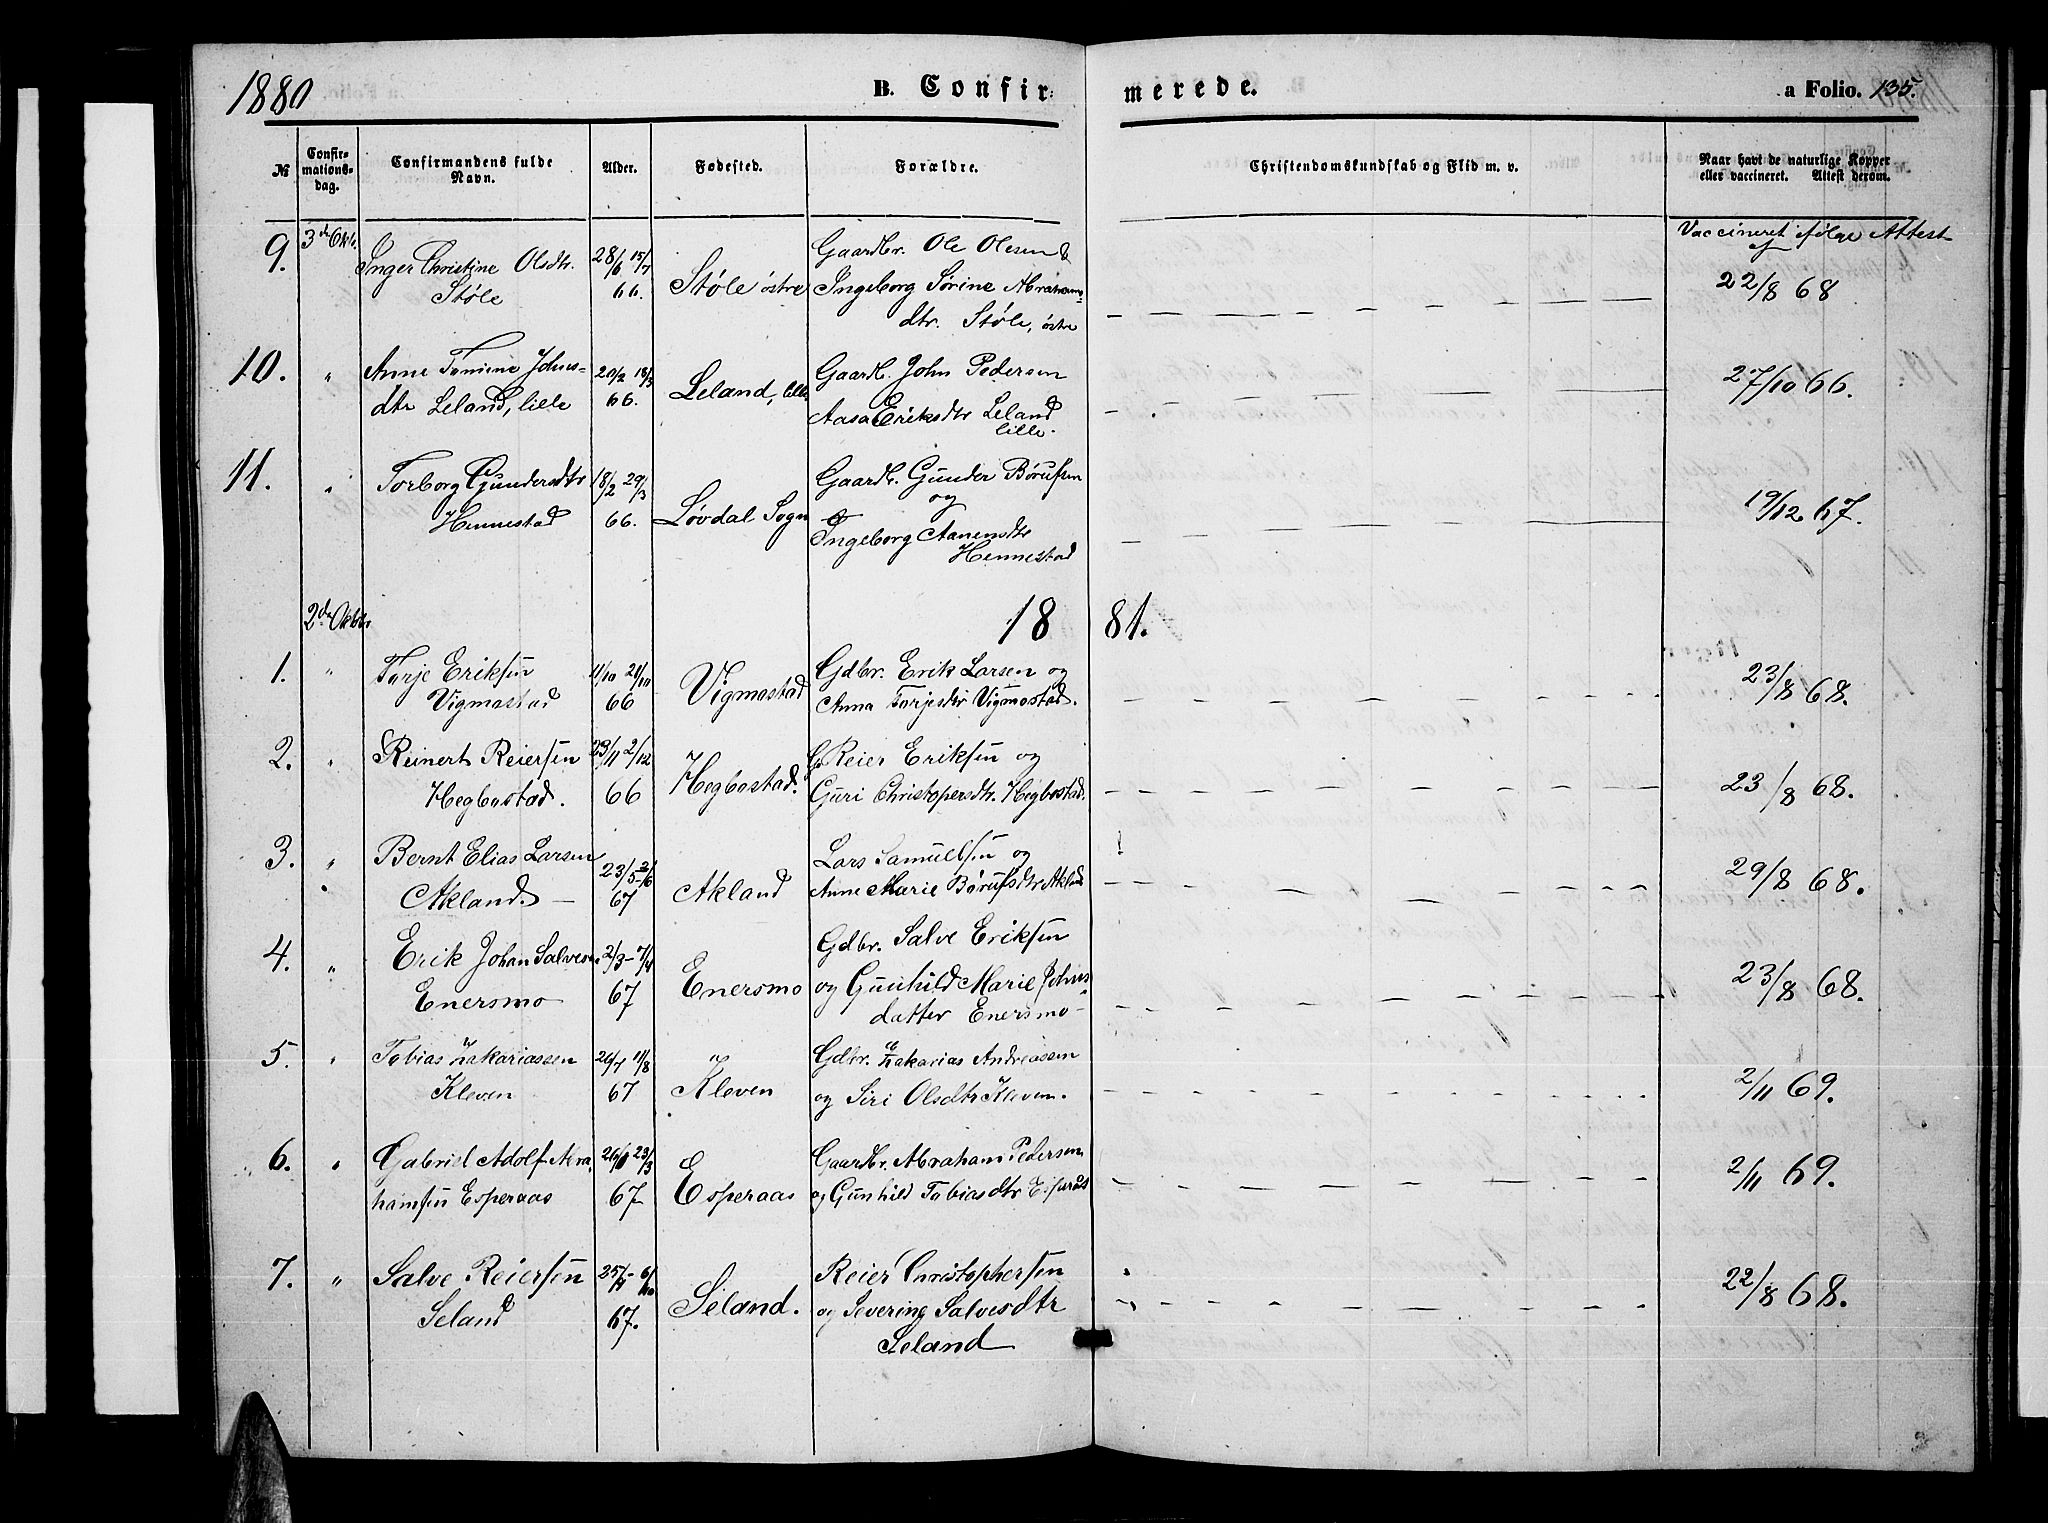 1880 B. Confirmerede. a Folio. 135.
№ Confirmationsdag. Confirmandens fulde Navn. Alder. Fødested. Forældre. Christendomskundskab og Flid m. v. Naar havt de naturlige Kopper eller vaccineret. Attest derom.
3de Oktb. Vaccineret ifølge Attest af
9. Inger Christine Olsdtr. 28/6 15/7 Gaardbr. Ole Olesen &
Støle 66. Støle østre Ingeborg Sørine Abrahams- 22/8 68
dtr. Støle, østre
10. " Anne Tomine Johns- 20/2 18/3 Leland, lille Gaardb. John Pedersen 27/10 66.
dtr Leland, lille 66. Aasa Eriksdtr Leland
lille.
11. " Torborg Gundersdtr 18/2 29/3 Gaardb. Gunder Børufsen
og
Hennestad 66. Løvdal Sogn Ingeborg Aanensdtr 19/12 67.
Hennestad
2de Oktbr. 1881.
1. " Torje Eriksen 11/10 21/10 Vigmostad Gdbr. Erik Larsen og 23/8 68.
Vigmostad 66 Anna Torjesdtr Vigmostad.
2. " Reinert Reiersen 23/11 2/12 Hegbostad. G. Reier Eriksen og
Hegbostad. 66 Guri Christopersdtr. Hegbostad. 23/8 68.
3. " Bernt Elias Larsen 23/5 - 2/6 Lars Samuelsen og
Akland. 67 Akland Anne Marie Børufsdtr Akland 29/8 68.
4. " Erik Johan Salvesen 2/3 - 7/4 Gdbr. Salve Eriksen
Enersmo 67 Enersmo og Gunhild Marie Johns- 23/8 68.
datter Enersmo
5. " Tobias Zakariassen 26/7 11/8 Gdbr. Zakarias Andreassen
Kleven 67 Kleven og Siri Olsdtr Kleven. 2/11 69.
6. " Gabriel Adolf Abra- 23/3 Gaardbr. Abraham Pedersen
hamsen Esperaas 67 Esperaas og Gunhild Tobiasdtr Esperaas 2/11 69.
7. " Salve Reiersen Reier Christophersen
Seland 67. Seland. og Severine Salvesdtr 22/8 68.
Seland